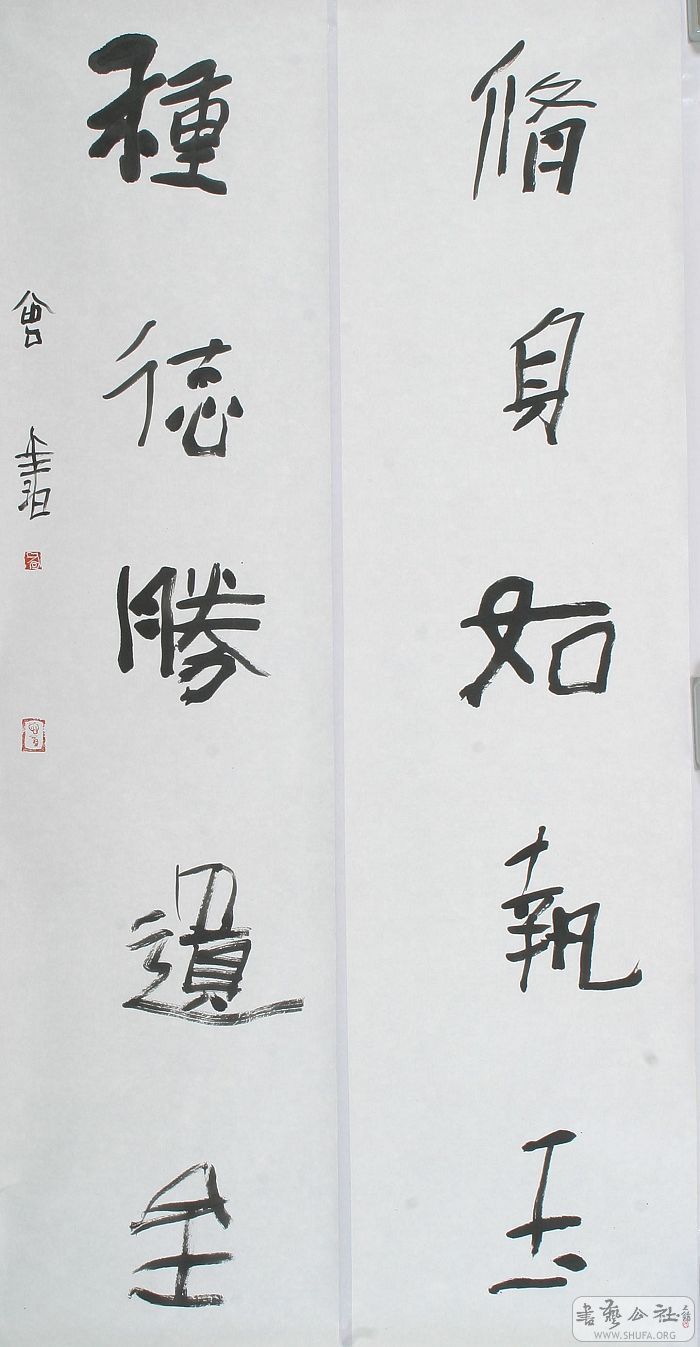 脩身如執玉
種德勝遺金
書藝公社
WWW.SHUFA.ORG